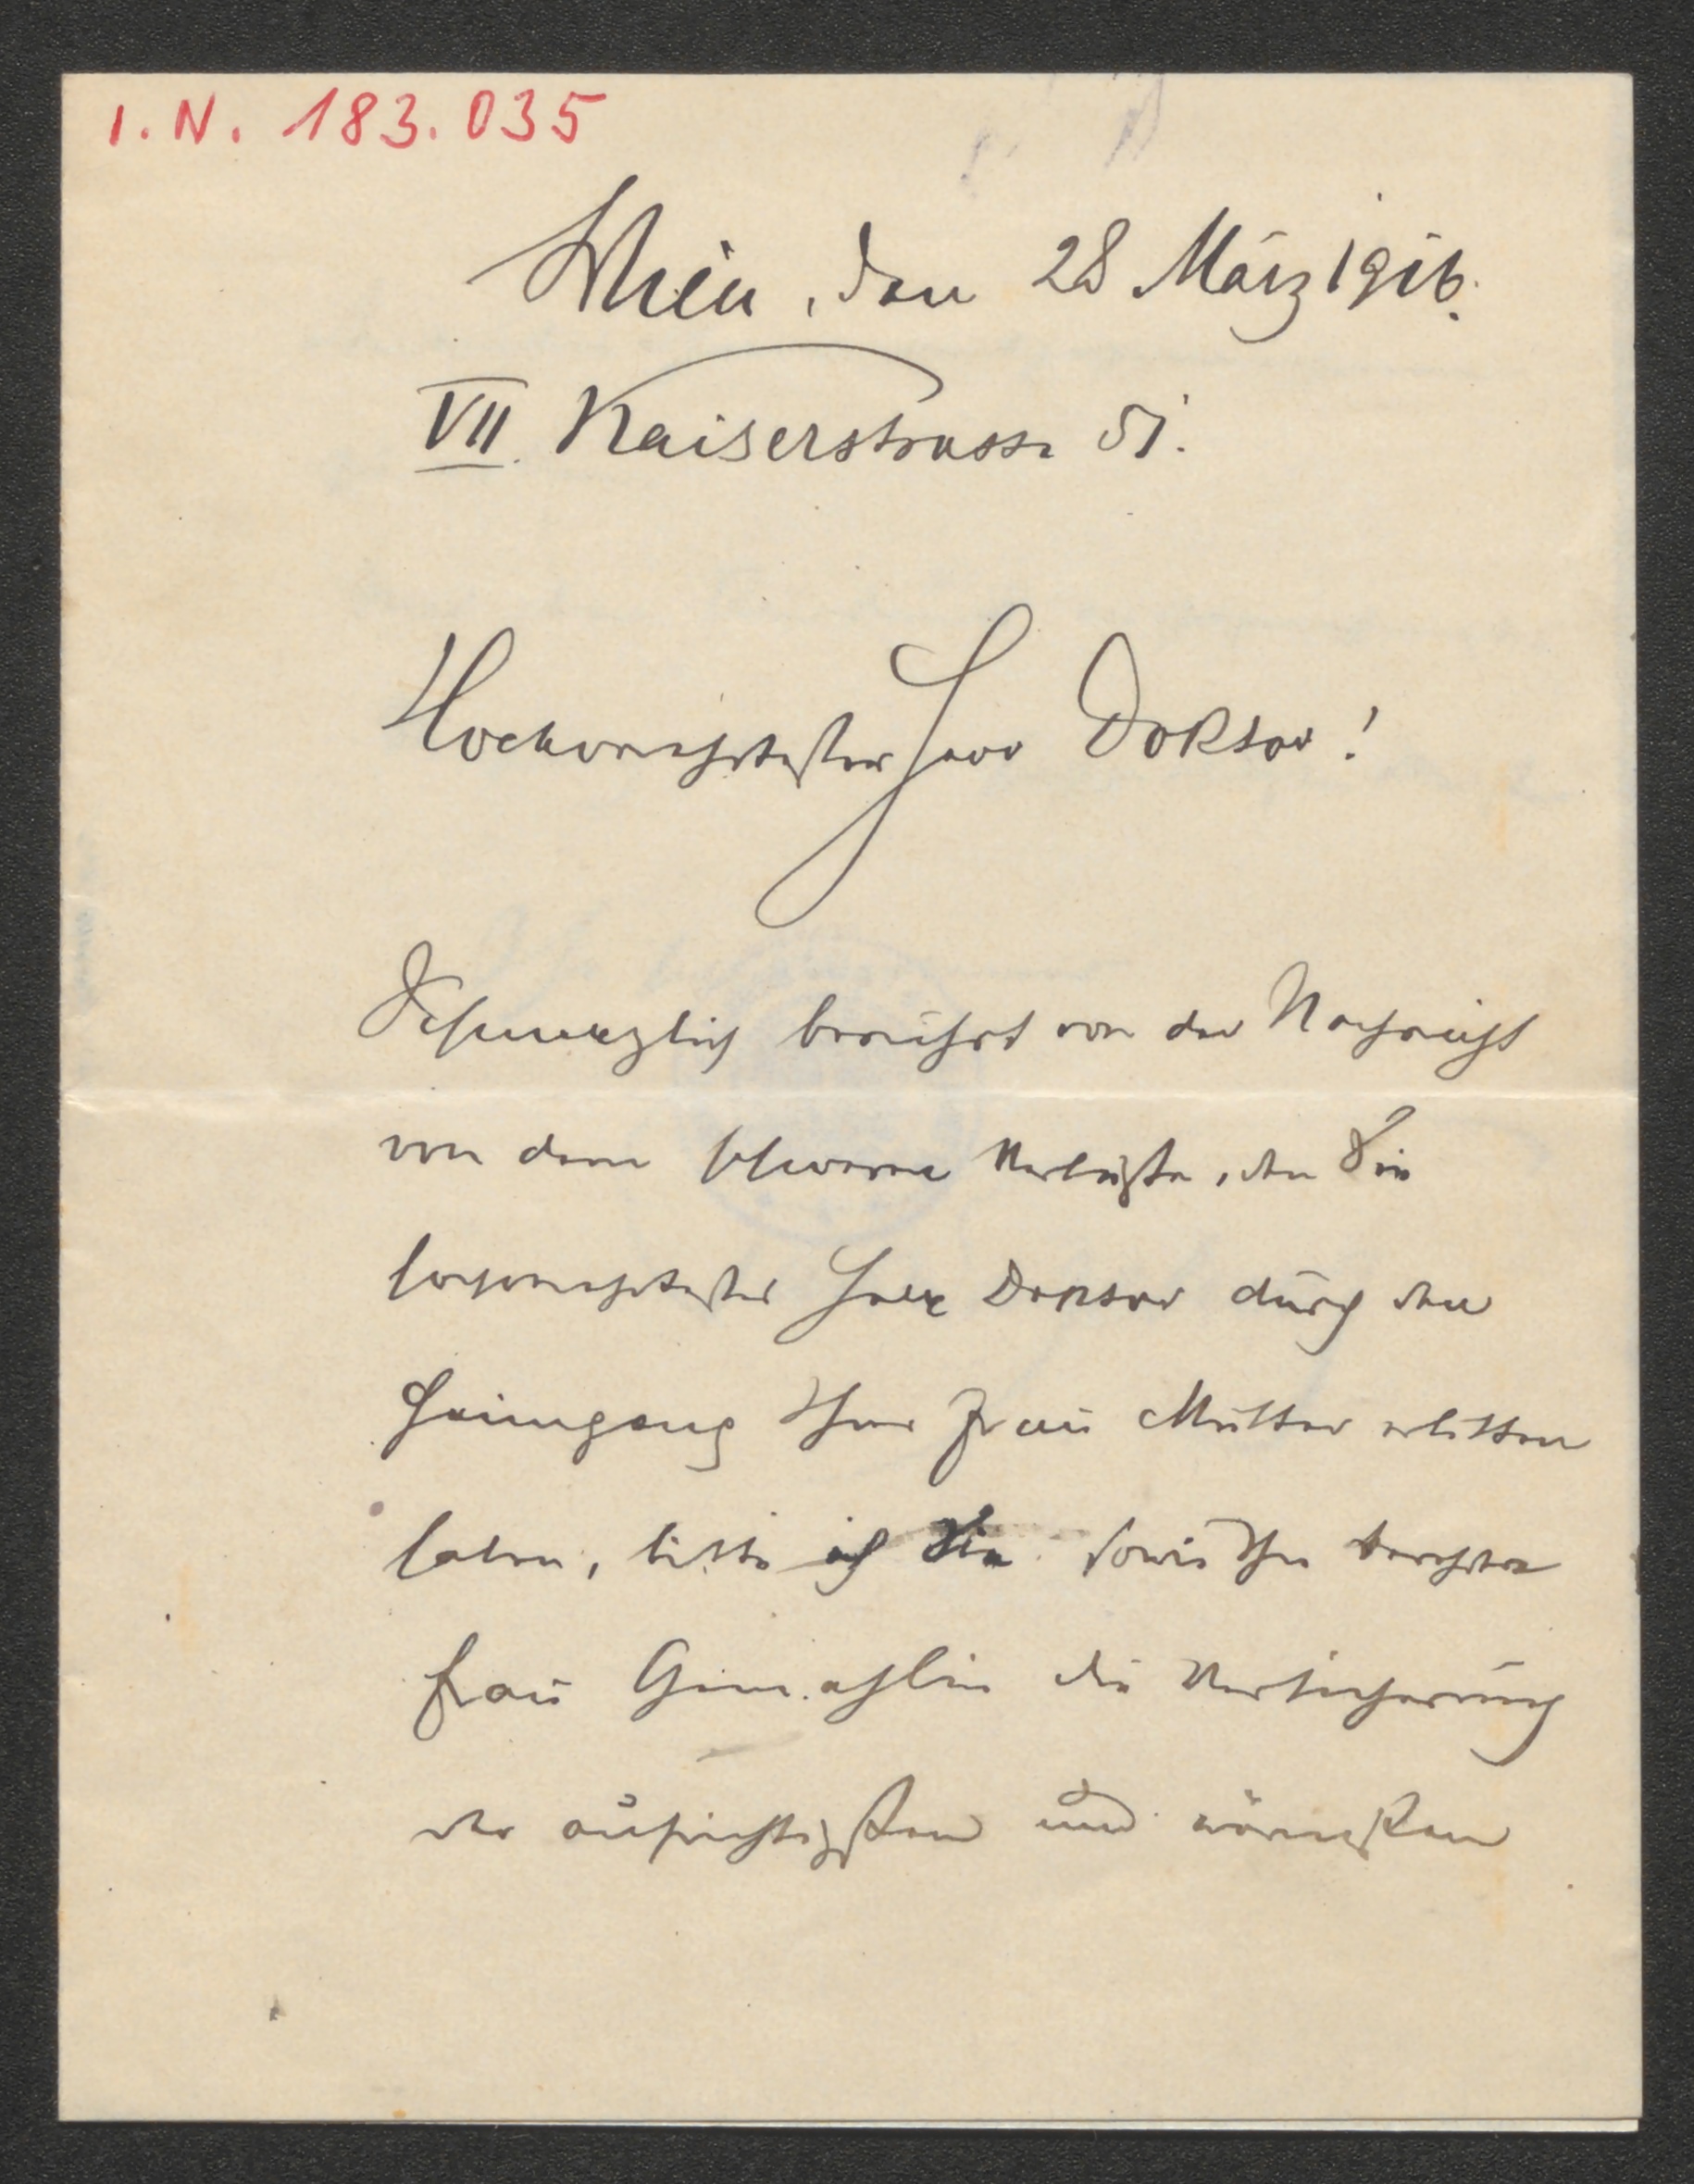 I.N. 183.035
Wien, den 28 März 1916.
VII. Kaiserstrasse 51.
Hochverehrtester Herr Doktor!
Schmerzlich berührt von der Nachricht
von dem schweren Verluste, den Sie
hochverehrtester Herr Doktor durch den
Heimgang Ihrer Frau Mutter erlitten
haben, bitte ich Sie sowie Ihre verehrte
Frau Gemahlin die Versicherung
der aufrichtigsten und wärmsten